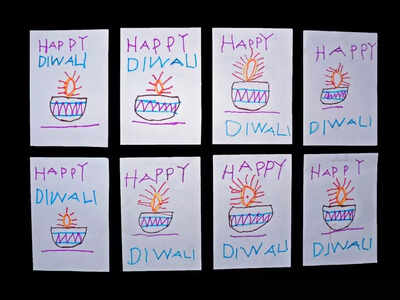 HAPPY
DIWALI
HAPPY
DIWALI
HAPPY
DIWALI
HAPPY
DIWALI
HAPPY
DIWALI
HAPPY
DIWALI
HAPPY
DIWALI
HAPPY
DIWALI